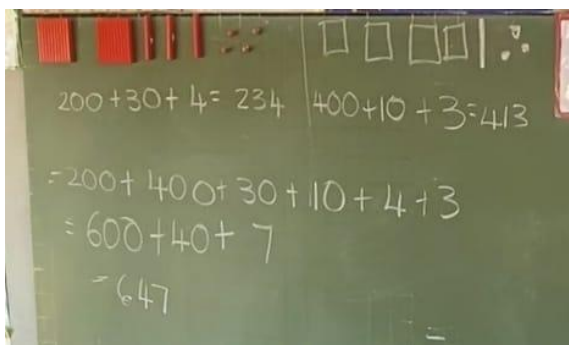 200+30+4= 234 400+10+3=413
=200+ 400+30+10+4+3
= 600+40+ 7
= 647
=